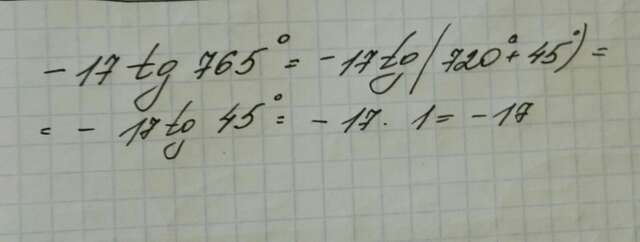 - 17 tg 765° = -17 tg (720° + 45°) =
= - 17 tg 45° = - 17 · 1 = -17